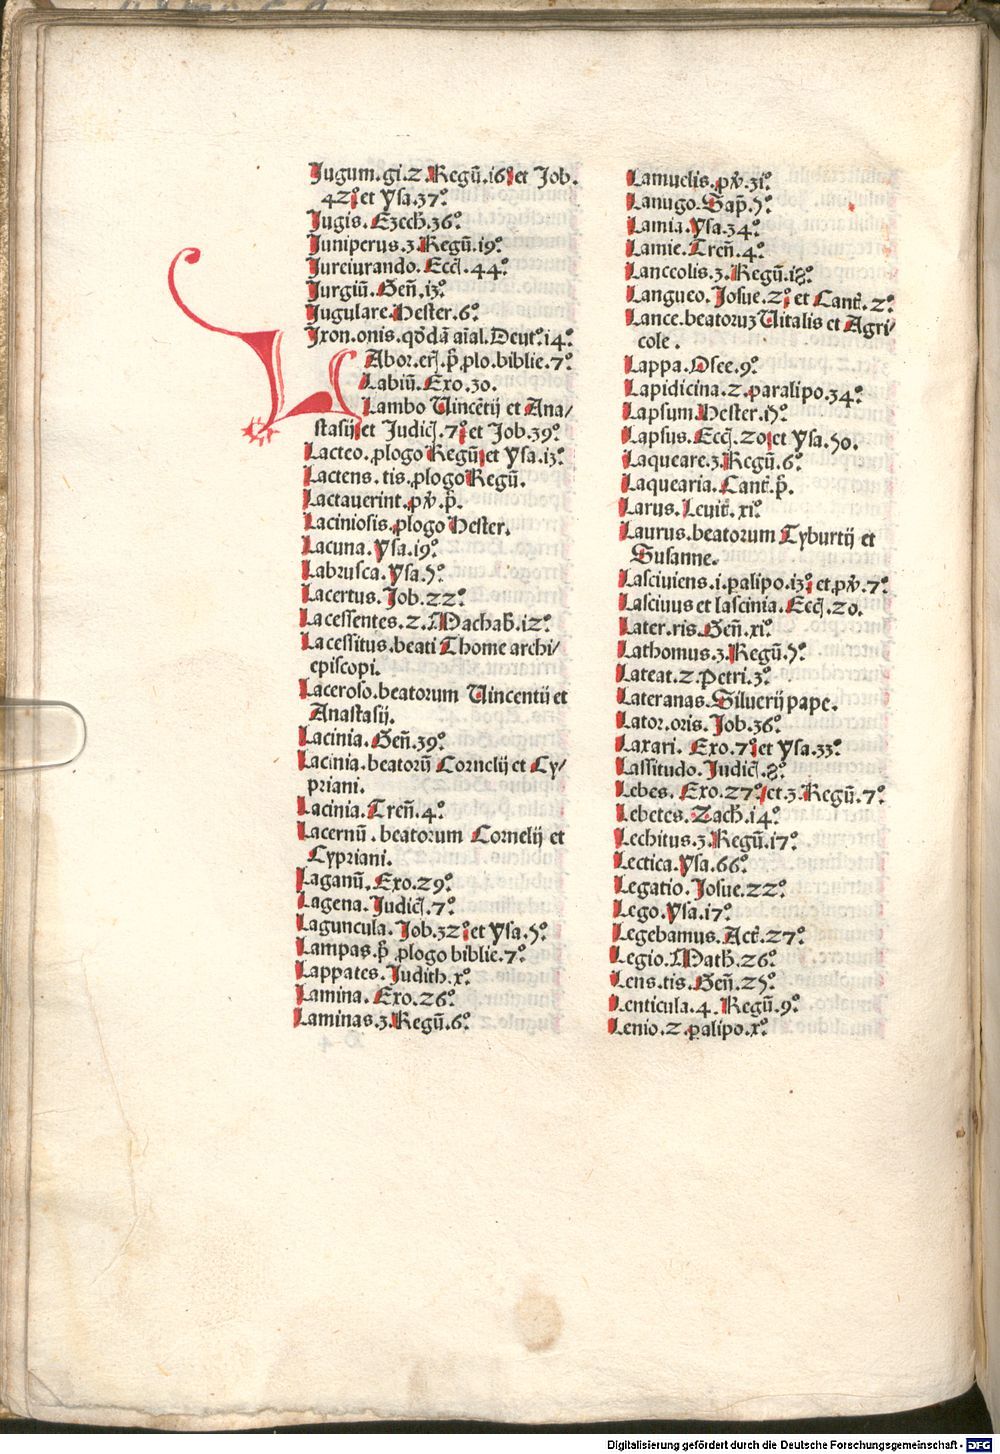 Jugum.gi.2.Regū.16.et Job.
42.et Ysa.37.°
Jugis.Ezech.36.°
Juniperus.3.Regū.19.°
Jureiurando.Eccī.44.°
Jurgiū.Geñ.13.°
Jugulare.Hester.6.°
Jxon.onis.qōdā aīal.Deut.°14.°
LAbor.erī.p̄.plo.biblie.7.°
Labiū.Exo.30.
Lambo Uincētij et Ana/
stasij et Judicī.7.°et Job.39.°
Lacteo.plogo Regū et Ysa.13.°
Lactens.tis.plogo Regū.
Lactauerint.pv̄.p̄.
Laciniosis.plogo Hester.
Lacuna.Ysa.19.°
Labrusca.Ysa.5.°
Lacertus.Job.22.°
Lacessentes.2.Machab.12.°
Lacessitus.beati Thome archi/
episcopi.
Laceroso.beatorum Uincentij et
Anastasij.
Lacinia.Geñ.39.°
Lacinia.beatorū Cornelij et Cy/
priani.
Lacinia.Treñ.4.°
Lacernū.beatorum Cornelij et
Cypriani.
Laganū.Exo.29.°
Lagena.Judicī.7.°
Laguncula.Job.32.°et Ysa.5.°
Lampas.p̄ plogo biblie.7.°
Lappates.Judith.x.°
Lamina.Exo.26.°
Laminas.3.Regū.6.°
Lamuelis.pv̄.31.°
Lanugo.Sap̄.5.°
Lamia.Ysa.34.°
Lamie.Treñ.4.°
Lanceolis.3.Regū.18.°
Langueo.Josue.2.°et Cant̄.2.°
Lance.beatoruꝫ Uitalis et Agri/
cole.
Lappa.Osee.9.°
Lapidicina.2.paralipo.34.°
Lapsum.Hester.15.°
Lapsus.Eccī.20.et Ysa.50.
Laqueare.3.Regū.6.°
Laquearia.Cant̄.p̄.
Larus.Leuit̄.xi.°
Laurus.beatorum Tyburtij et
Susanne.
Lasciuiens.i.palipo.13.°et.pv̄.7.°
Lasciuus et lascinia.Eccī.20.
Later.ris.Geñ.xi.°
Lathomus.3.Regū.5.°
Lateat.2.Petri.3.°
Lateranas.Siluerij pape.
Lator.oris.Job.36.°
Laxari.Exo.7.°et Ysa.33.°
Lassitudo.Judicī.8.°
Lebes.Exo.27.°et.3.Regū.7.°
Lebetes.Zach.14.°
Lechitus.3.Regū.17.°
Lectica.Ysa.66.°
Legatio.Josue.22.°
Lego.Ysa.17.°
Legebamus.Act̄.27.°
Legio.Math.26.°
Lens.tis.Geñ.25.°
Lenticula.4.Regū.9.°
Lenio.2.palipo.x.°
Digitalisierung gefördert durch die Deutsche Forschungsgemeinschaft - DFG